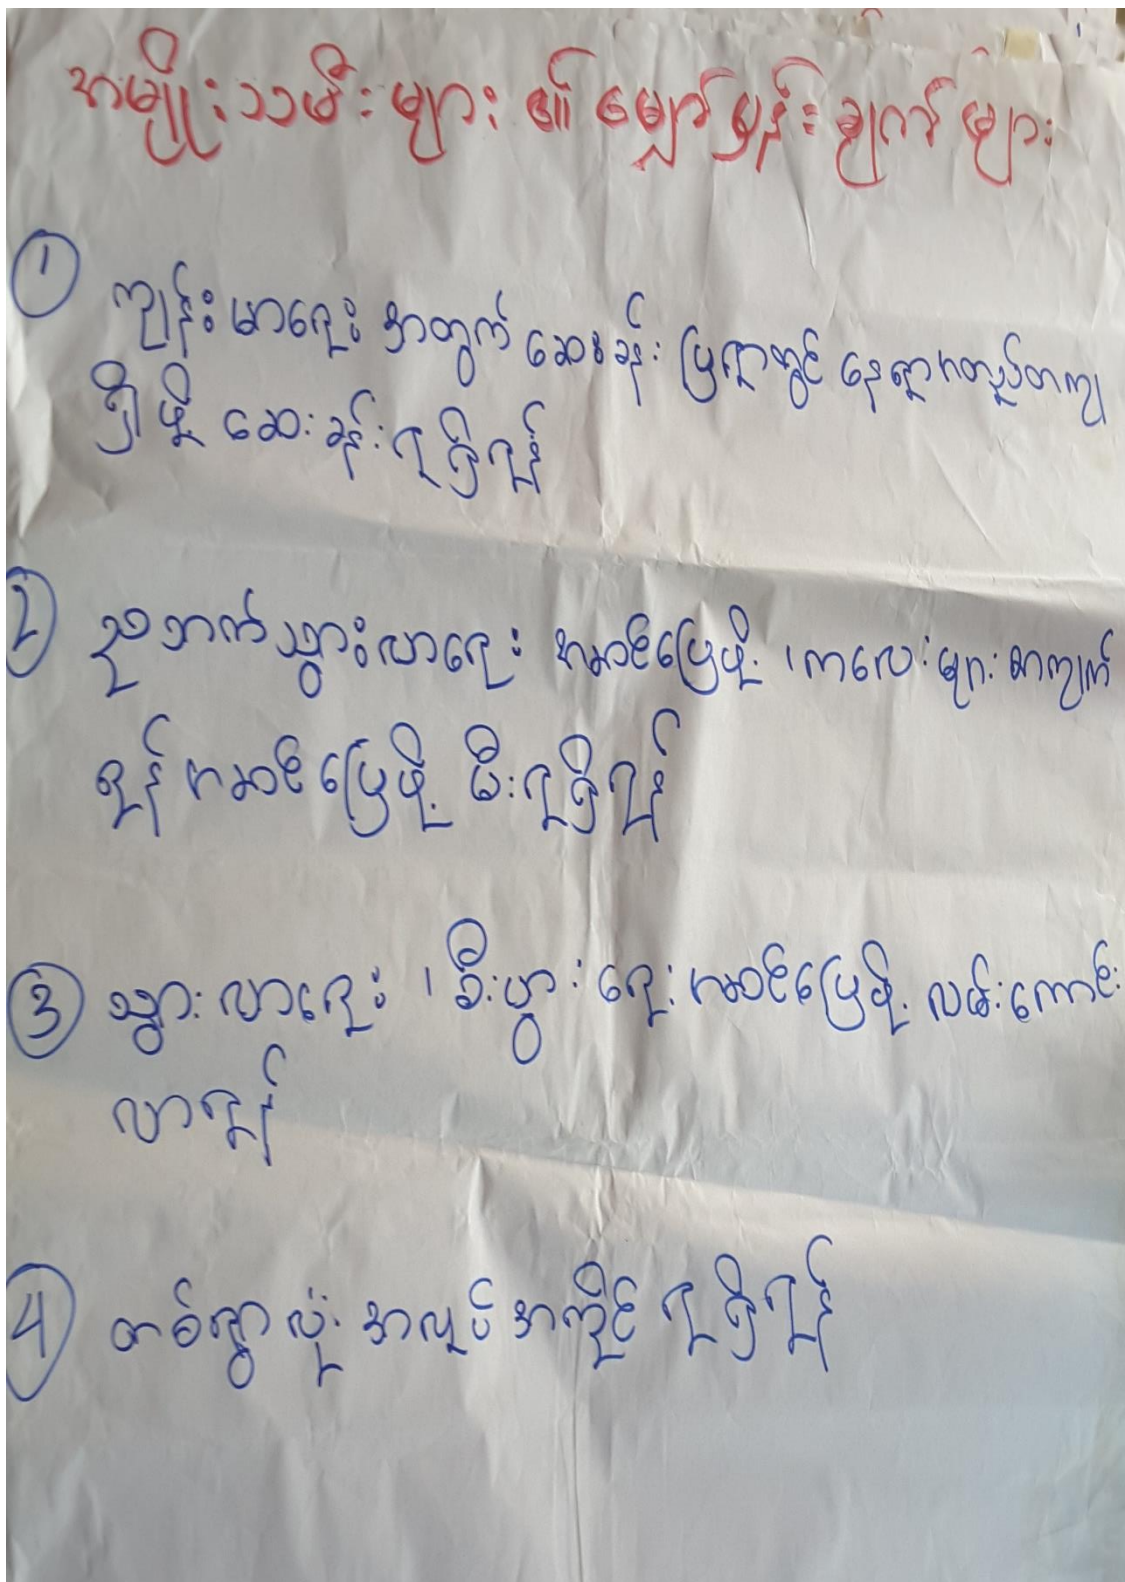 အမျိုးသမီးများ၏ မျှော်မှန်းချက်များ
① ကျန်းမာရေး အတွက် ဆေးခန်း မြို့ရွာတွင် နေရာတကျ
ရှိဖို့ ဆေးခန်းရရှိရန်
② ညဘက်သွားလာရေး အဆင်ပြေဖို့၊ ကလေးများ စာကျက်
ရန် အဆင်ပြေဖို့ မီးရရှိရန်
③ သွားလာရေး၊ စီးပွားရေး အဆင်ပြေဖို့ လမ်းကောင်း
လာရန်
4 တစ်ရွာလုံး အလုပ်အကိုင် ရရှိရန်